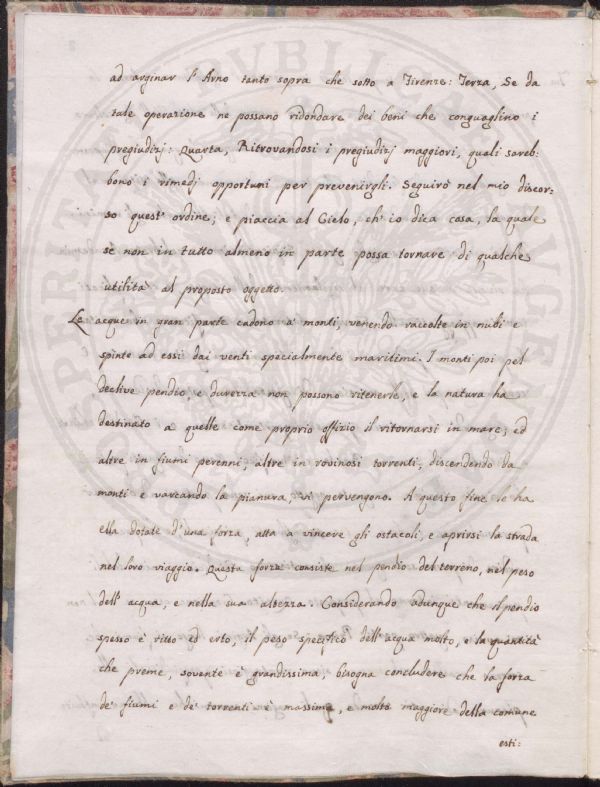 ad arginar l' Arno tanto sopra che sotto a Firenze: Terza, Se da
tale operazione ne possano ridondare dei beni che conguaglino i
pregiudizj: Quarta, Ritrovandosi i pregiudizj maggiori, quali sareb:
bono i rimedj opportuni per prevenirgli. Seguirò nel mio discor:
so quest' ordine; e piaccia al Cielo, ch' io dica cosa, la quale
se non in tutto almeno in parte possa tornare di qualche
utilità al proposto oggetto.
Le acque in gran parte cadono a' monti, venendo raccolte in nubi e
spinte ad essi dai venti specialmente marittimi. I monti poi pel
declive pendio e durezza non possono ritenerle, e la natura ha
destinato a quelle come proprio offizio il ritornarsi in mare; ed
altre in fiumi perenni, altre in rovinosi torrenti, discendendo da
monti e varcando la pianura, vi pervengono. A questo fine le ha
ella dotate d'una forza, atta a vincere gli ostacoli, e aprirsi la strada
nel loro viaggio. Questa forza consiste nel pendio del terreno, nel peso
dell' acqua, e nella sua altezza. Considerando adunque che il pendio
spesso è ritto ed erto, il peso specifico dell' acqua molto, e la quantità
che preme, sovente è grandissima, bisogna concludere che la forza
de' fiumi e de' torrenti è massima, e molto maggiore della comune
esti:
PUBLICA